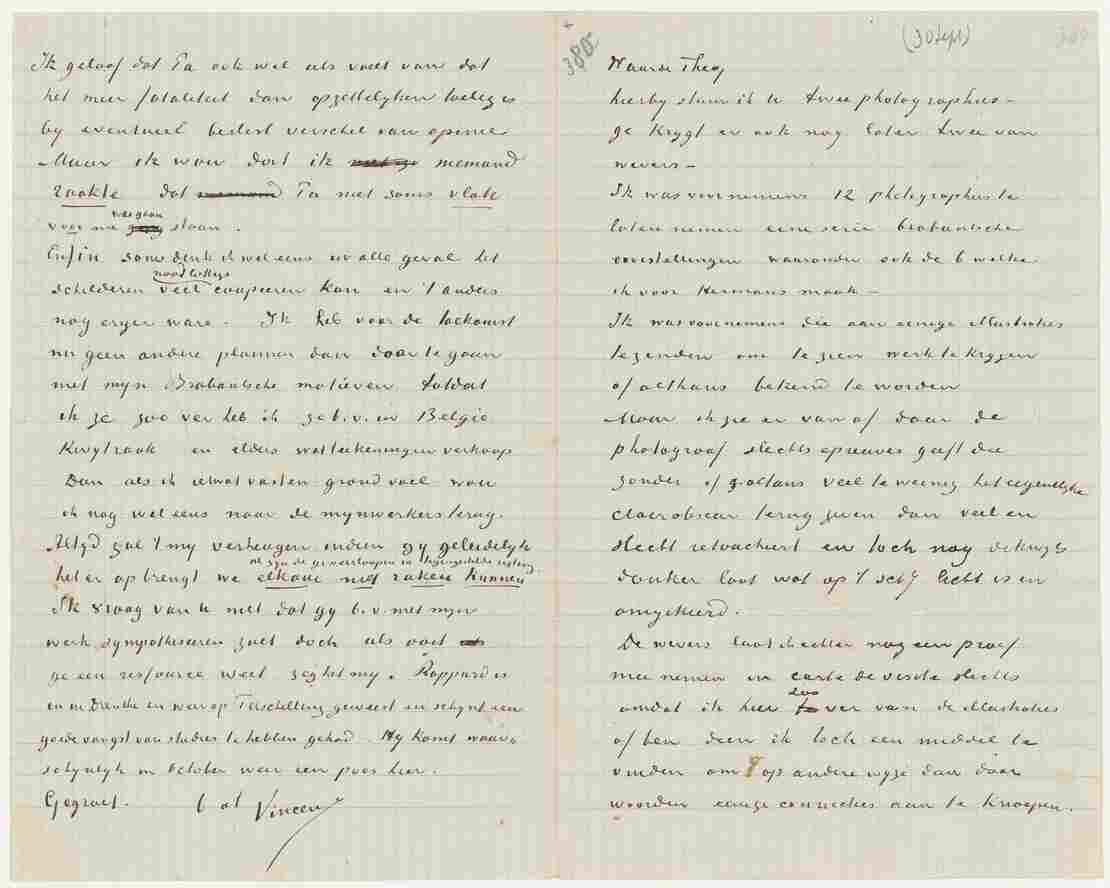 Ik geloof dat Pa ook wel iets voelt van dat
het meer fataliteit dan opzettelijken toeleg is
by eventueel bestett verschil van opinie
Maar ik wou dat ik niemand
raakte dat Pa niet soms vlak
voor me was gaan staan.
Enfin soms denk ik wel eens in alle geval het
schilderen noodlottigs veel couperen kan en 't anders
nog erger ware. Ik heb voor de toekomst
nu geen andere plannen dan door te gaan
met mijn Brabantsche motieven totdat
ik ze zoo ver heb ik ze b.v. in Belgie
kwytraak en elders wat teekeningen verkoop
Dan als ik ietwat vasten grond voel wou
ik nog wel eens naar de mynwerkers terug.
Altyd zal 't my verheugen indien gy geleidelyk
al zyn de gevoerloopen in tegengestelde rigting
het er op brengt we elkaar niet raken kunnen
Ik vraag van u niet dat gy b.v. met myn
werk sympathiseeren zult doch als ooit
ge een ressource weet zeg het my. Rappard is
en in Drenthe en weer op Terschelling geweest en schynt een
goede vangst van studies te hebben gehad. Hy komt waar-
schynlyk in October weer een poos hier.
Gegroet. t. à t. Vincent
380
(30 Sept)
Waarde Theo,
hierby stuur ik U twee photographies –
ge krygt er ook nog later twee van
wevers –
Ik was voornemens 12 photographies te
laten nemen eene serie brabantsche
voorstellingen waaronder ook de 6 welke
ik voor Hermans maak –
Ik was voornemens die aan eenige illustraties
te zenden om te zien werk te krygen
of althans bekend te worden
Maar ik zie er van af daar de
photograaf slechts epreuves geeft die
zonder of althans veel te weinig het eigentlyke
clair obscur terug geven dan veel en
slecht retoucheert en toch nog dikwyls
donker laat wat op 't schy licht is en
omgekeerd.
De wevers laat ik echter nog een proef
mee nemen in carte de visite slechts
omdat ik hier dus ver van de illustraties
of ben dien ik toch een middel te
vinden om op andere wyze dan daar
woorden eenige connecties aan te knoopen.